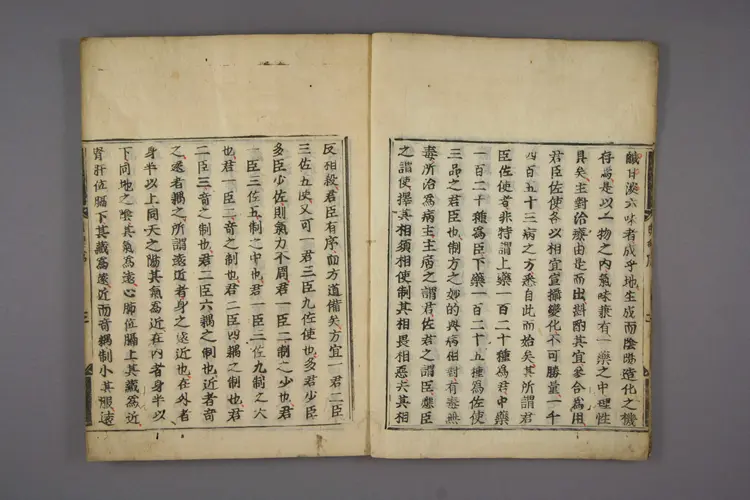 鹹甘淡六味者成乎地生成而陰陽造化之機
存焉是以一物之內氣味兼有一藥之中理性
具矣主對治療由是而出斟酌其宜參合爲用
君臣佐使各以相宜宣攝變化不可勝量一千
四百五十三病之方悉自此而始矣其所謂君
臣佐使者非特謂上藥一百二十種爲君中藥
一百二十種爲臣下藥一百二十五種爲佐使
三品之君臣也制方之妙的與病相對有毒無
毒所治爲病主主病之謂君佐君之謂臣應臣
之謂使擇其相須相使制其相畏相惡去其相
反相殺君臣有序而方道備矣方宜一君二臣
三佐五使又可一君三臣九佐使也多君少臣
多臣少佐則氣力不周君一臣二制之少也君
一臣三佐五制之中也君一臣三佐九制之大
也君一臣二奇之制也君二臣四耦之制也君
二臣三奇之制也君二臣六耦之制也近者奇
之遠者耦之所謂遠近者身之遠近也在外者
身半以上同天之陽其氣爲近在內者身半以
下同地之陰其氣爲遠心肺位膈上其藏爲近
腎肝位膈下其藏爲遠近而奇耦制小其服遠